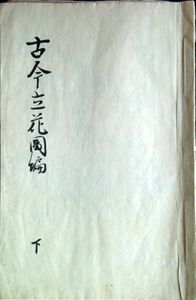 古今立花圖編
下